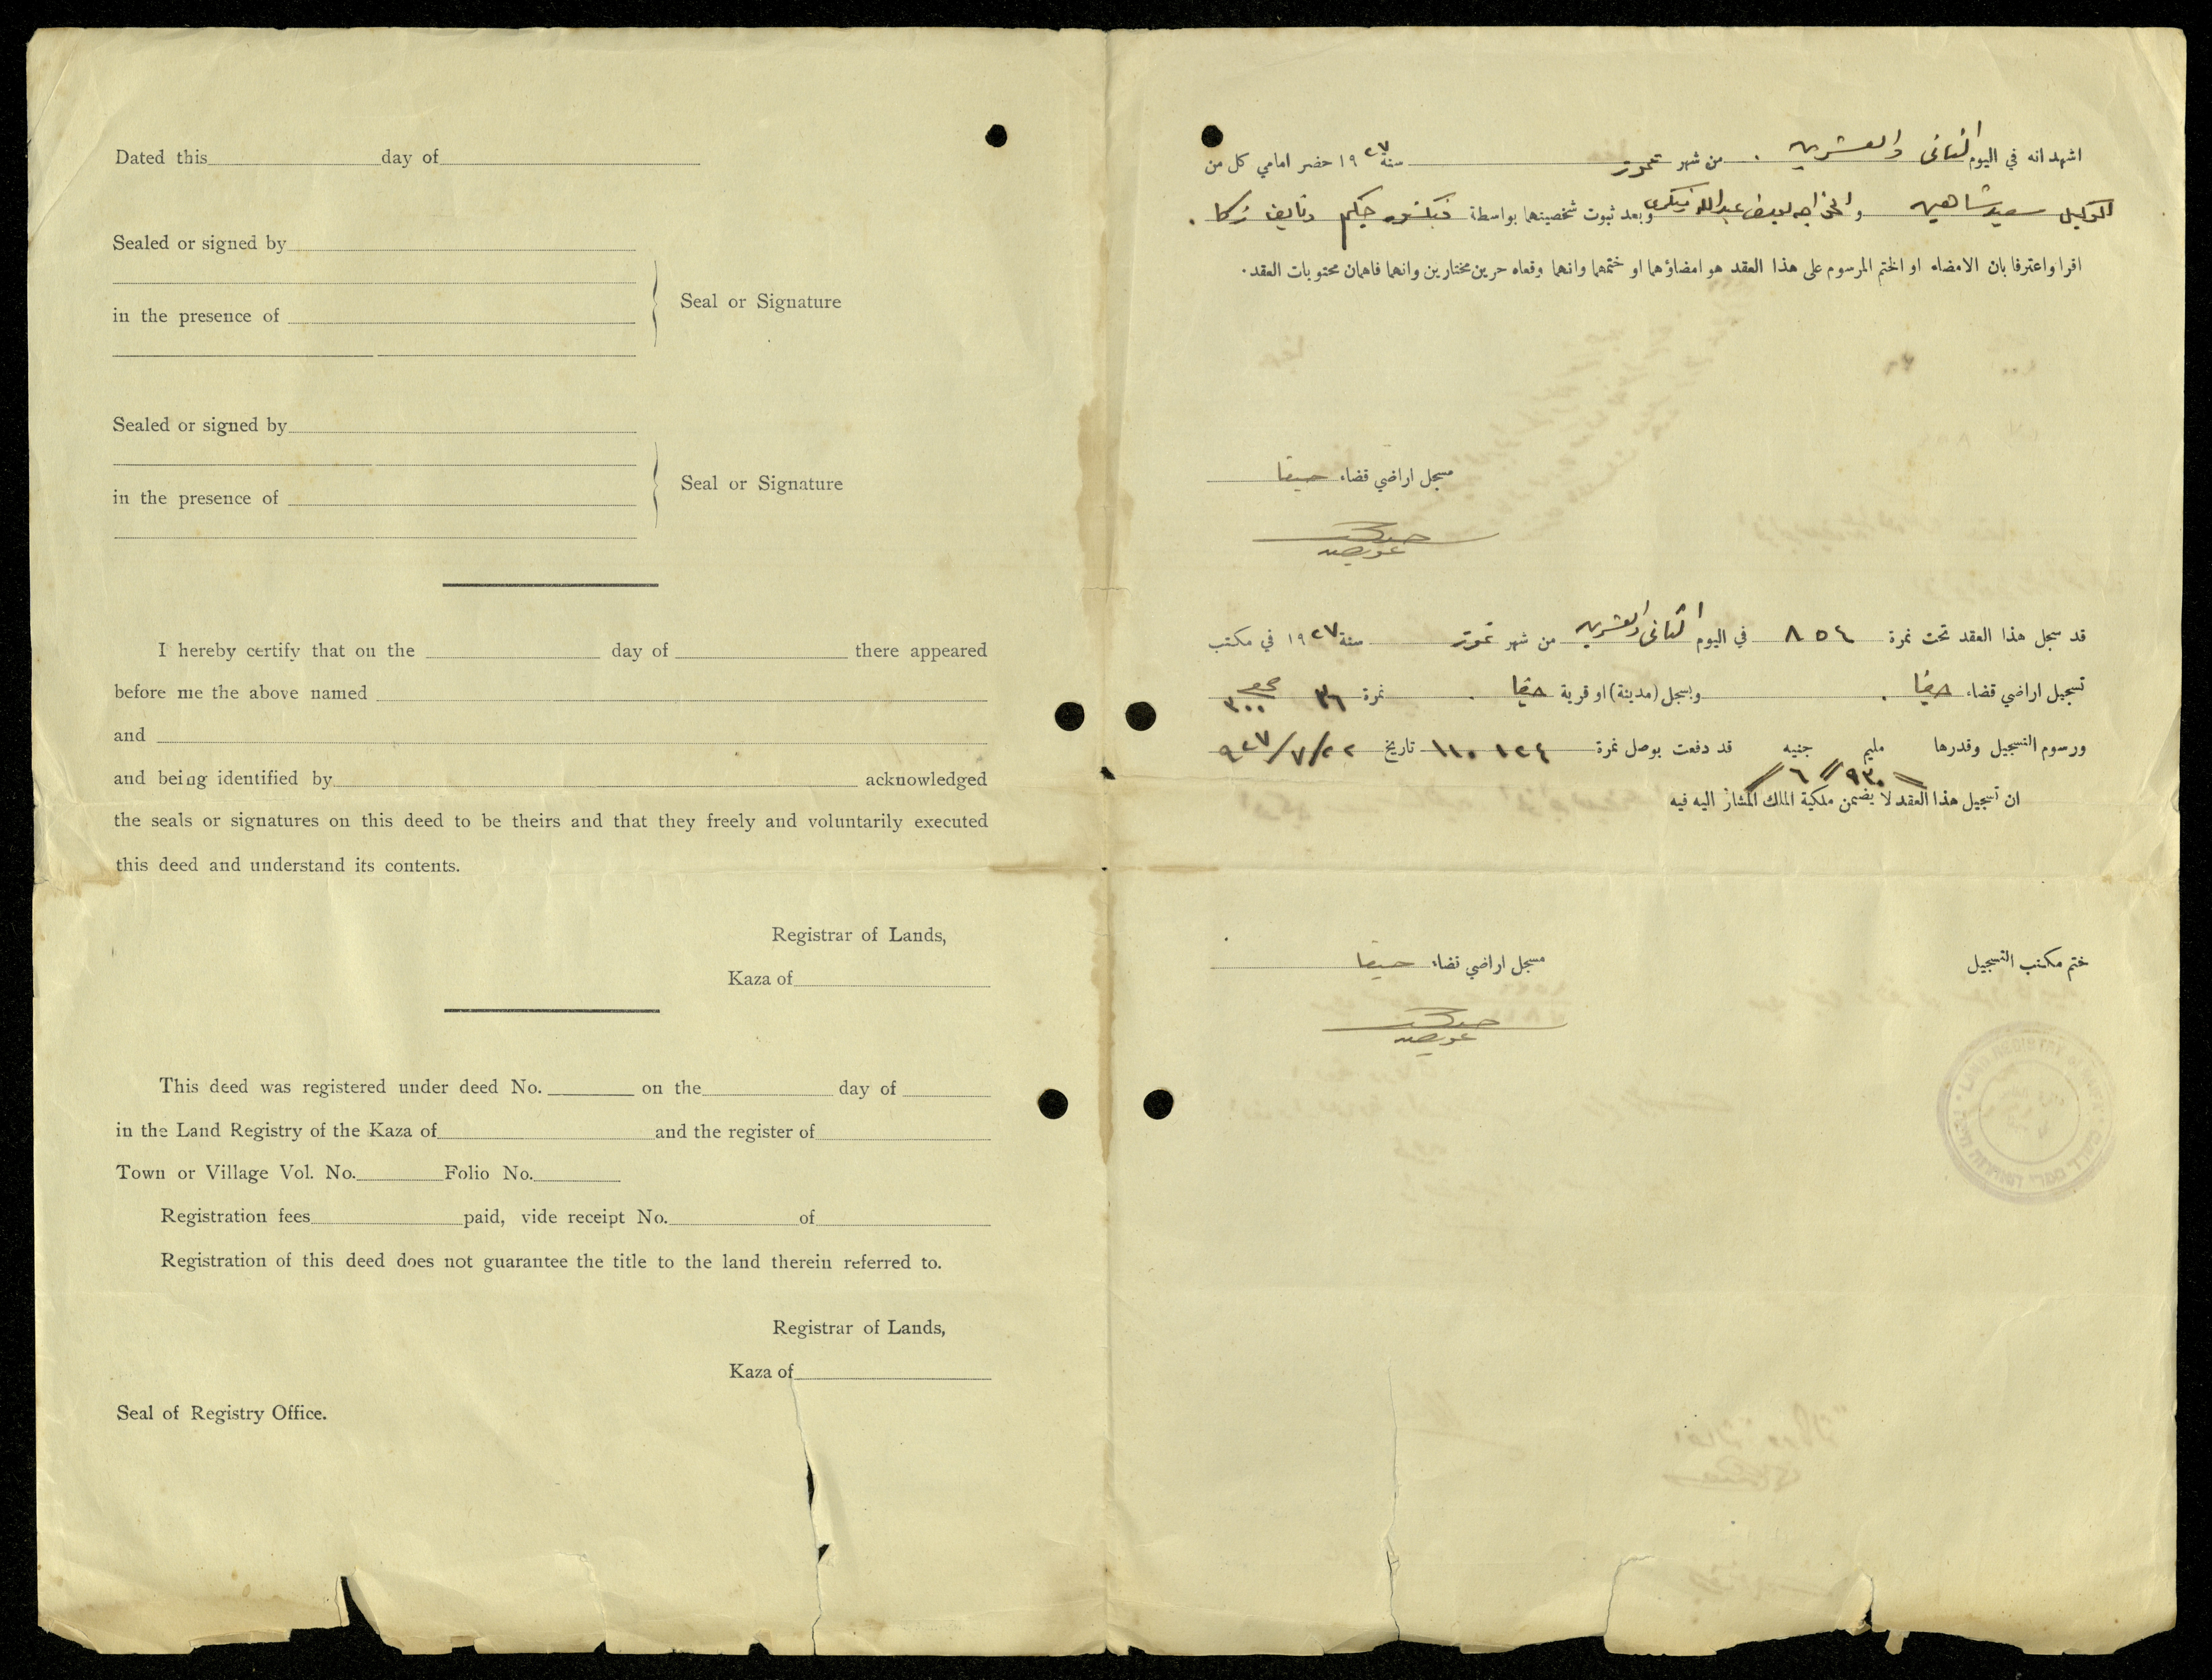 Dated this day of
Sealed or signed by
in the presence of
Seal or Signature
Sealed or signed by
in the presence of
Seal or Signature
I hereby certify that on the day of there appeared
before me the above named
and
and being identified by acknowledged
the seals or signatures on this deed to be theirs and that they freely and voluntarily executed
this deed and understand its contents.
Registrar of Lands,
Kaza of
This deed was registered under deed No. on the day of
in the Land Registry of the Kaza of and the register of
Town or Village Vol. No. Folio No.
Registration fees paid, vide receipt No. of
Registration of this deed does not guarantee the title to the land therein referred to.
Registrar of Lands,
Kaza of
Seal of Registry Office.
اشهد انه في اليوم الثاني والعشرين من شهر تموز سنة ١٩٢٧ حضر امامي كل من
الوكيل سعيد شاهين و الخواجه عبدالله وبعد ثبوت شخصيتهما بواسطة فيكتور حكيم ونايف زكا
اقرا واعترفا بان الامضاء او الختم المرسوم على هذا العقد هو امضاؤهما او ختمهما وانهما وقعاه حرين مختارين وانهما فاهمان محتويات العقد.
مسجل اراضي قضاء حيفا
قد سجل هذا العقد تحت نمرة ٨٥٤ في اليوم الثاني والعشرين من شهر تموز سنة ١٩٢٧ في مكتب
تسجيل اراضي قضاء حيفا وبسجل (مدينة) او قرية حيفا نمرة ٣٦ ٣٠٠
ورسوم التسجيل وقدرها مليم جنيه قد دفعت بوصل نمرة ١١٠١٢٤ تاريخ ٢٢/٧/٩٢٧
٩٣٠ ٦
ان تسجيل هذا العقد لا يضمن ملكية الملك المشار اليه فيه
ختم مكتب التسجيل
مسجل اراضي قضاء حيفا